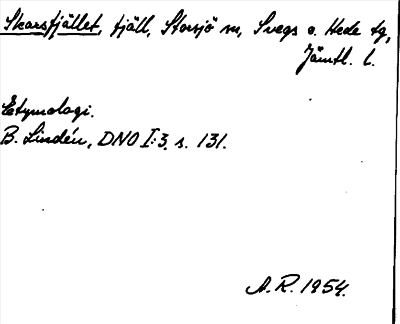 Skarsfjället, fjäll, Storsjö sn, Svegs o. Hede tg,
Jämtl. l.
Etymologi.
B. Lindén, DNO I:3, s. 131.
A. R. 1954.